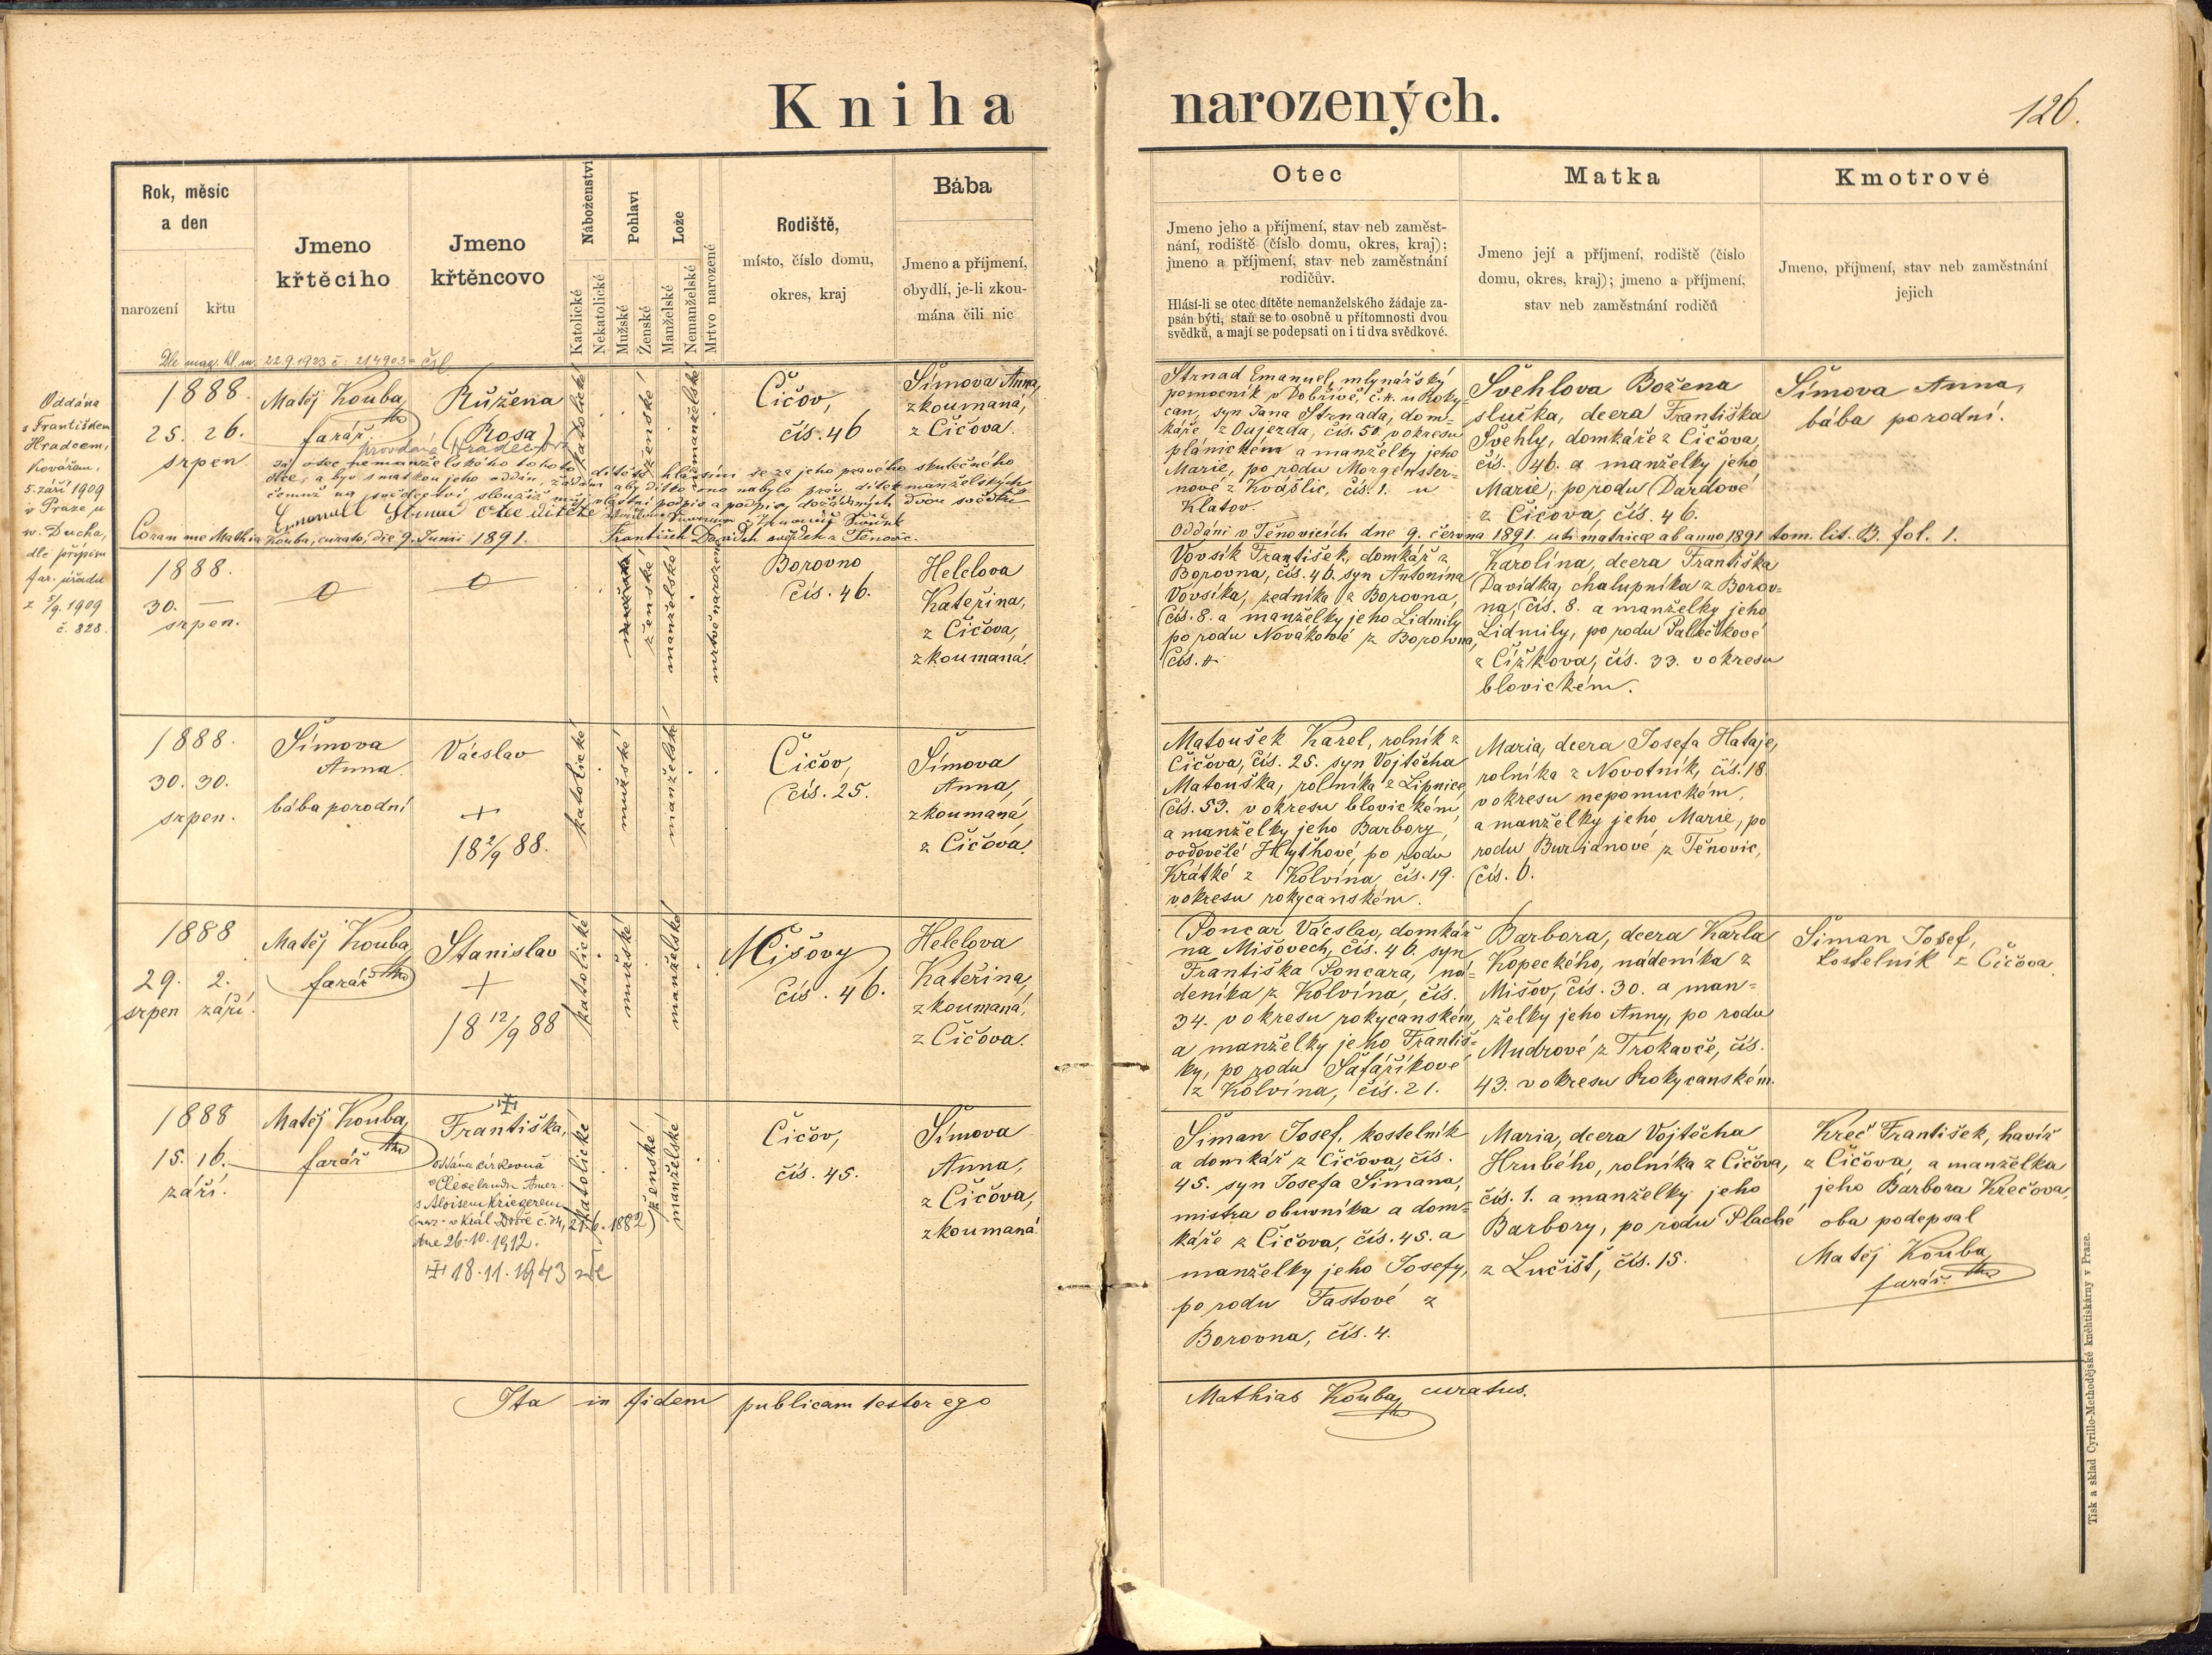 Kniha narozených.
126.
Rok, měsíc
a den
narození
křtu
Jmeno
křtěcího
Jmeno
křtěncovo
Náboženství
Katolické
Nekatolické
Pohlaví
Mužské
Ženské
Lože
Manželské
Nemanželské
Mrtvo narozené
Rodiště,
místo, číslo domu,
okres, kraj
Bába
Jmeno a příjmení,
obydlí, je-li zkou-
mána čili nic
Otec
Jmeno jeho a příjmení, stav neb zaměst-
nání, rodiště (číslo domu, okres, kraj);
jmeno a příjmení, stav neb zaměstnání
rodičův.
Hlásí-li se otec dítěte nemanželského žádaje za-
psán býti, staň se to osobně u přítomnosti dvou
svědků, a mají se podepsati on i ti dva svědkové.
Matka
Jmeno její a příjmení, rodiště (číslo
domu, okres, kraj); jmeno a příjmení,
stav neb zaměstnání rodičů
Kmotrové
Jmeno, příjmení, stav neb zaměstnání
jejich
22.9.1923 č. 214903
Oddána
s Františkem
Hradcem,
kovářem,
5. září 1909
v Praze u
sv. Ducha,
dle přípisu
far. úřadu
z 5/9. 1909
č. 828.
1888.
25. 26.
srpen
Matěj Kouba,
farář
Růžena
(Rosa)
provdaná Hradec
katolické
ženské
nemanželské
Čičov,
čís. 46
Šímova Anna,
zkoumaná,
z Čičova
Já otec nemanželského tohoto dítěte hlásím se za jeho pravého skutečného
otce, a byv s matkou jeho oddán, žádám aby dítko ono nabylo práv dítek manželských
čemuž na svědectví sloužiž můj vlastní podpis a podpisy dožádaných dvou svědků
Coram me Mathia Kouba, curato, die 9. Junii 1891.
František Davídek svědek z Těnovic.
Strnad Emanuel, mlynářský
pomocník v Dobřívě, č. 4. u Roky-
can, syn Jana Strnada, dom-
káře z Oujezda, čís. 50. v okresu
plánickém a manželky jeho
Marie, po rodu Morgenster-
nové z Kvášlic, čís. 1. u
Klatov.
Švehlova Božena
služka, dcera Františka
Švehly, domkáře z Čičova,
čís. 46. a manželky jeho
Marie, po rodu Dardové
z Čičova, čís. 46.
Šímova Anna,
bába porodní.
Oddáni v Těnovicích dne 9. června 1891 uti matricae ab anno 1891 tom. lit. B. fol. 1.
1888.
30. —
srpen.
ženské
manželské
mrtvě narozené
Borovno
čís. 46.
Helclova
Kateřina,
z Čičova,
zkoumaná.
Vovsík František, domkář z
Borovna, čís. 46. syn Antonína
Vovsíka, zedníka z Borovna,
čís. 8. a manželky jeho Lidmily
po rodu Novákové z Borovna,
čís. 4
Karolína, dcera Františka
Davídka, chalupníka z Borov-
na, čís. 8. a manželky jeho
Lidmily, po rodu Palečkové
z Čížkova, čís. 33. v okresu
blovickém.
1888.
30. 30.
srpen.
Šímova
Anna
bába porodní
Václav
+
18 2/9 88.
katolické
mužské
manželské
Čičov,
čís. 25.
Šímova
Anna,
zkoumaná,
z Čičova.
Matoušek Karel, rolník z
Čičova, čís. 25. syn Vojtěcha
Matouška, rolníka z Lipnice,
čís. 53. v okresu blovickém,
a manželky jeho Barbory,
ovdovělé po rodu
Krátké z Kolvína, čís. 19.
v okresu rokycanském.
Maria, dcera Josefa Hataje,
rolníka z Novotník, čís. 18.
v okresu nepomuckém,
a manželky jeho Marie, po
rodu Burianové z Těnovic,
čís. 6.
1888
29. 2.
srpen září.
Matěj Kouba,
farář
Stanislav
+
18 12/9 88
katolické
mužské
manželské
Mišovy
čís. 46.
Helclova
Kateřina,
zkoumaná,
z Čičova.
Poncar Václav, domkář
na Mišovech, čís. 46. syn
Františka Poncara, ná-
deníka z Kolvína, čís.
34. v okresu rokycanském,
a manželky jeho Františ-
ky, po rodu Šafaříkové
z Kolvína, čís. 21.
Barbora, dcera Karla
Kopeckého, nádeníka z
Mišov, čís. 30. a man-
želky jeho Anny, po rodu
Mudrové z Trokavče, čís.
43. v okresu Rokycanském.
Šiman Josef,
kostelník z Čičova.
1888
15. 16.
září.
Matěj Kouba,
farář
Františka,
oddána církevně
v Clevelandu Amer.
s Aloisem Kriegerem
dne 26.10.1912.
18.11.1943
katolické
ženské
manželské
Čičov,
čís. 45.
Šímova
Anna,
z Čičova,
zkoumaná.
Šiman Josef, kostelník
a domkář z Čičova, čís.
45. syn Josefa Šimana,
mistra obuvníka a dom-
káře z Čičova, čís. 45. a
manželky jeho Josefy,
po rodu Fastové z
Borovna, čís. 4.
Maria, dcera Vojtěcha
Hrubého, rolníka z Čičova,
čís. 1. a manželky jeho
Barbory, po rodu Plaché
z Lučišť, čís. 15.
Kreč František, havíř
z Čičova, a manželka
jeho Barbora Krečova,
oba podepsal
Matěj Kouba,
farář.
Ita in fidem publicam testor ego Mathias Kouba, curatus.
Tisk a sklad Cyrillo-Methodějské kněhtiskárny v Praze.